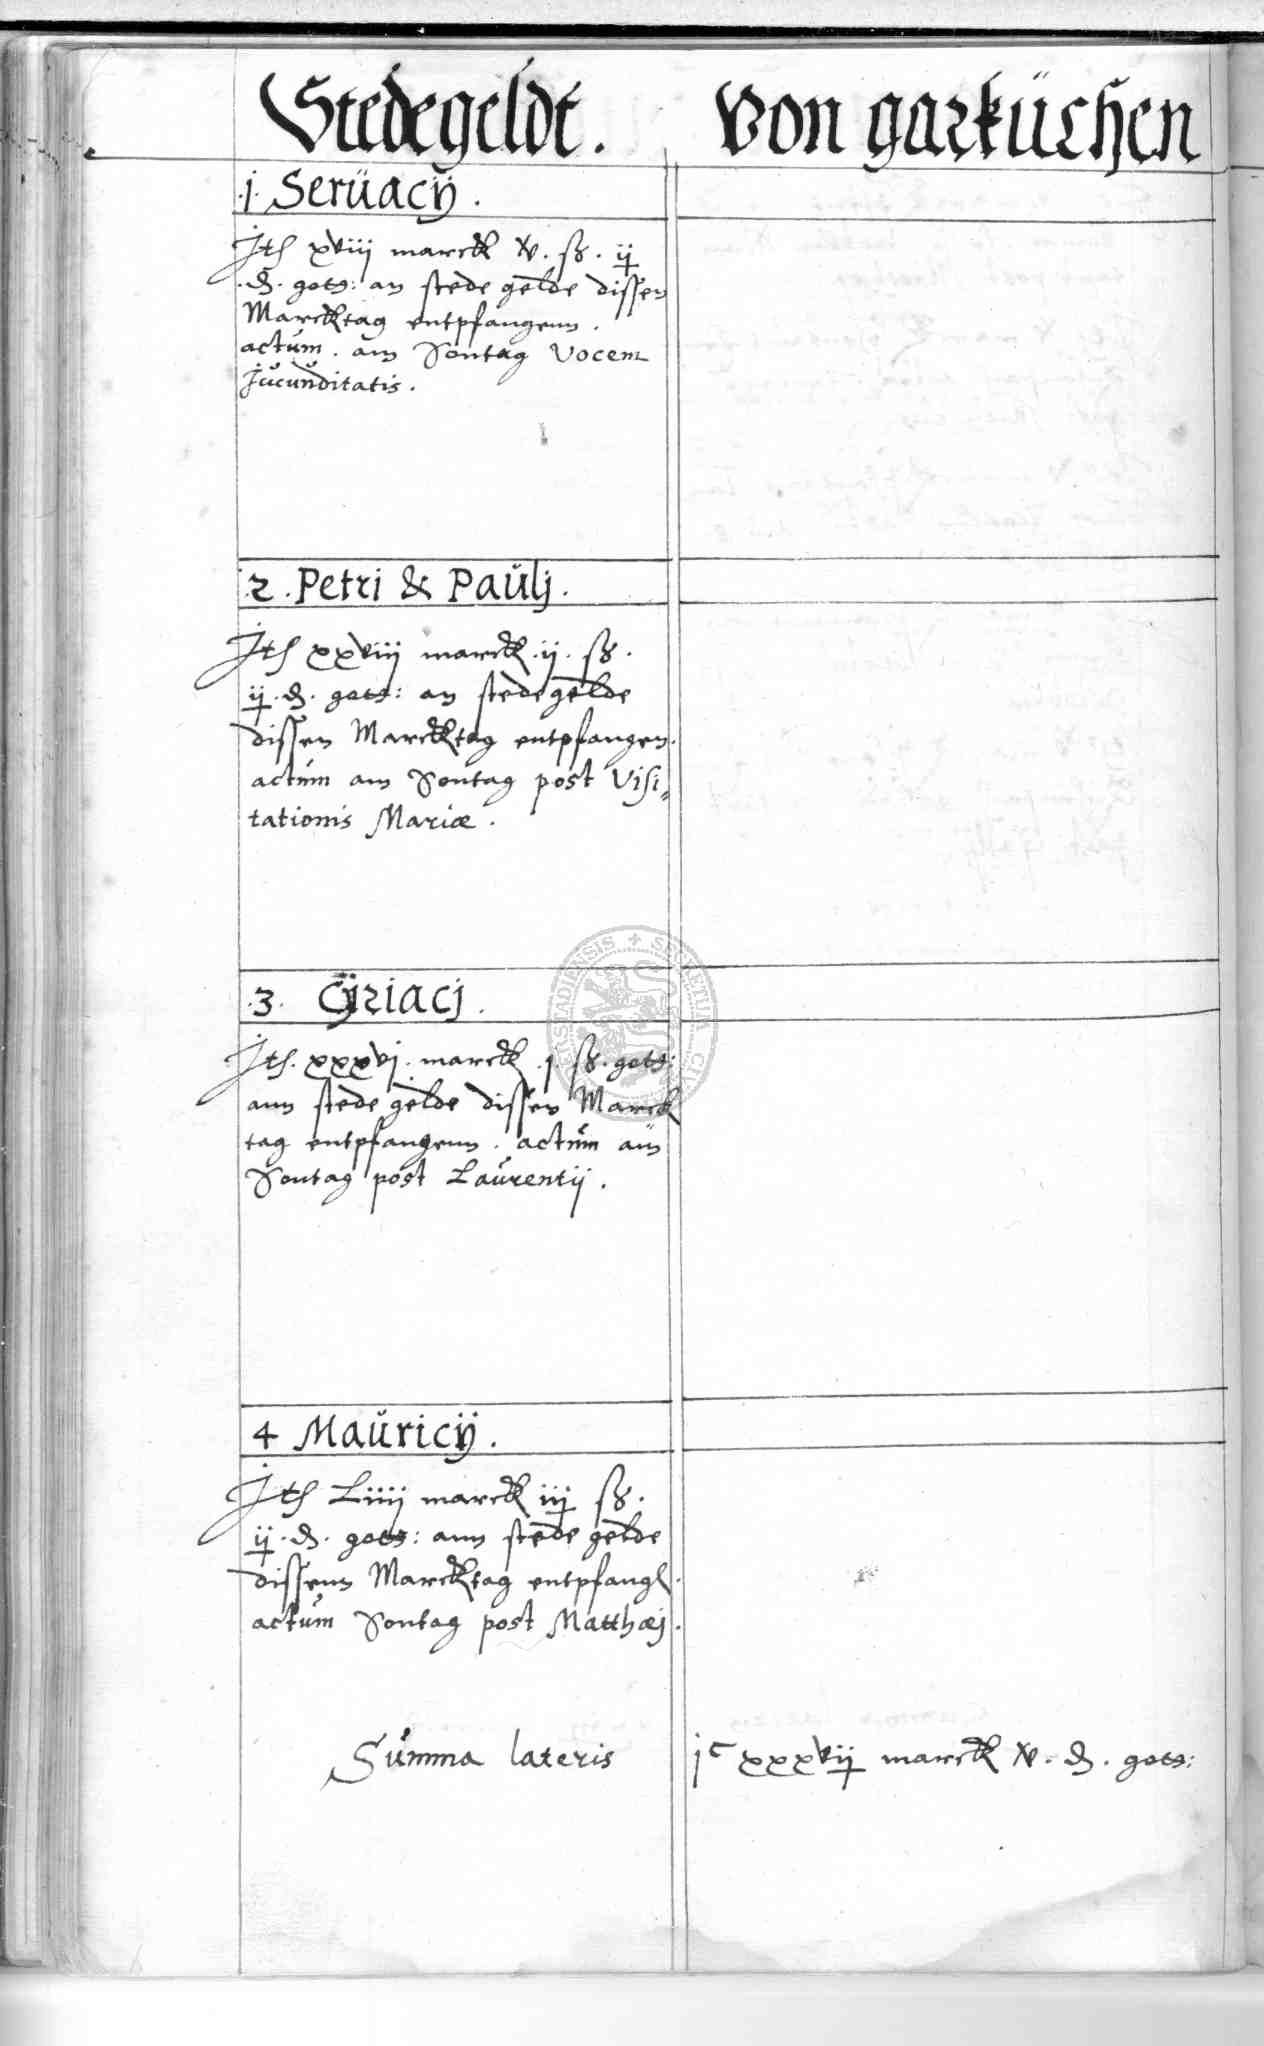 Stedegeldt. Von garküchen
.1. Serüacij.
Jtē xviij marck v. ß. ij
.₰. gots: an stede gelde dissen
Marcktag entpfangenn.
actŭm. am Sontag Vocem
Jŭcŭnditatis.
.2. Petri & Paŭlj.
Jtē xxviij marck .ij. ß.
ij .₰. gots: an stedegelde
dissen Marcktag entpfangen.
actŭm am Sontag post Visi⸗
tationis Mariæ.
.3. Cÿriacj.
Jtē. xxxvj. marck .j. ß. gots:
ann stede gelde dissen Marck
tag entpfangenn. actŭm am
Sontag post Laŭrentij.
4 Maŭricij.
Jtē Liiij marck iij ß.
ij .₰. gots: ann stede gelde
dissenn Marcktag entpfangē.
actŭm Sontag post Matthæj.
Sŭmma lateris jᶜ xxxvij marck v. ₰. gots:
SECRETUM CIVI
ERSTADIENSIS